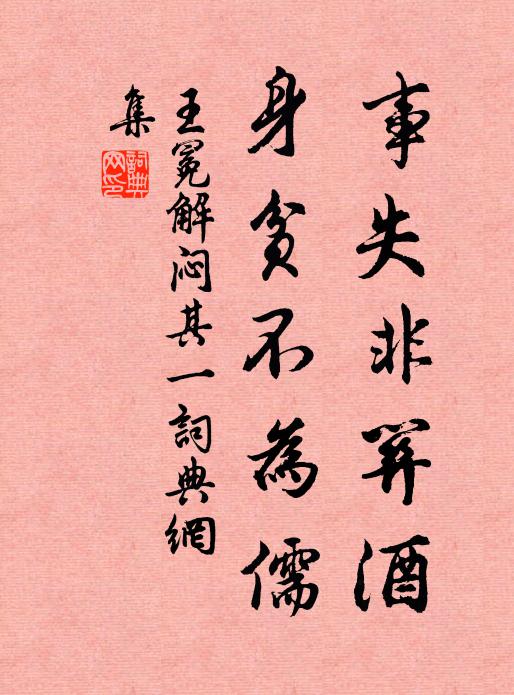 事失非關酒
身貧不為儒
王冕解悶其一詞典網
集
詞典
网印